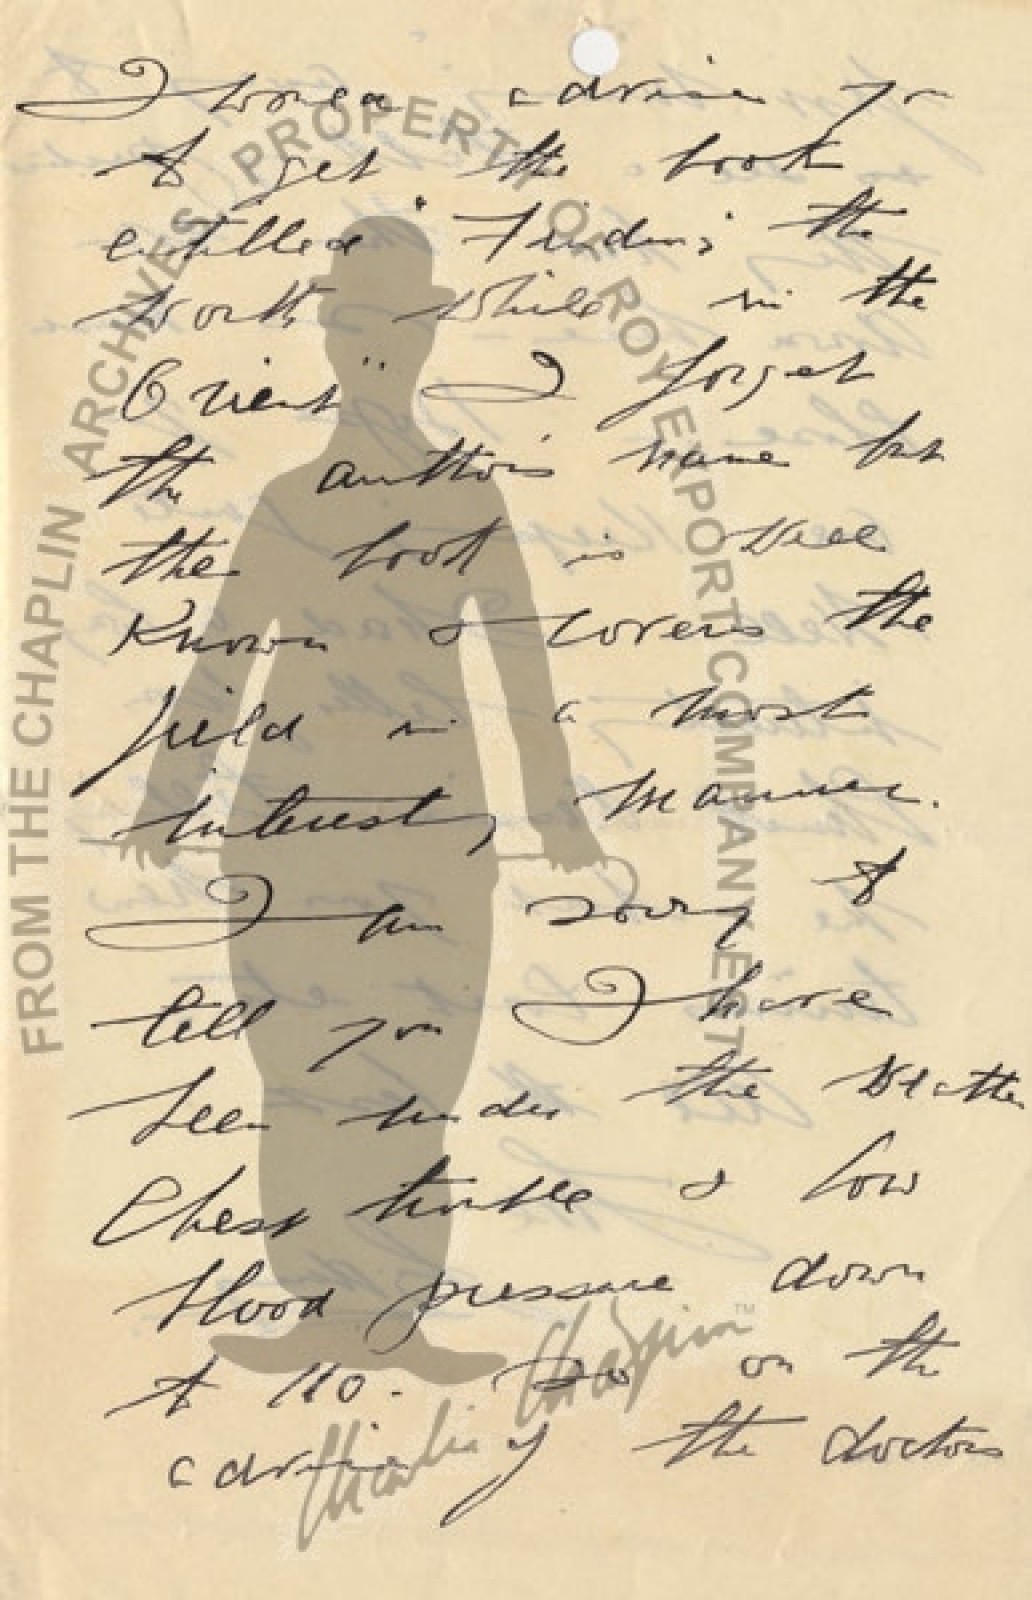 I would advise you
to get the book
entitled "Finding the
Worth While in the
Orient" I forget
the authors name but
the book is well
Known & covers the
field in a most
interesting manner.
I am sorry to
tell you I have
been under the weather
Chest trouble & low
blood pressure down
to 110. So on the
advice of the doctors
FROM THE CHAPLIN ARCHIVES PROPERTY OF ROY EXPORT COMPANY EST
Charlie Chaplin™